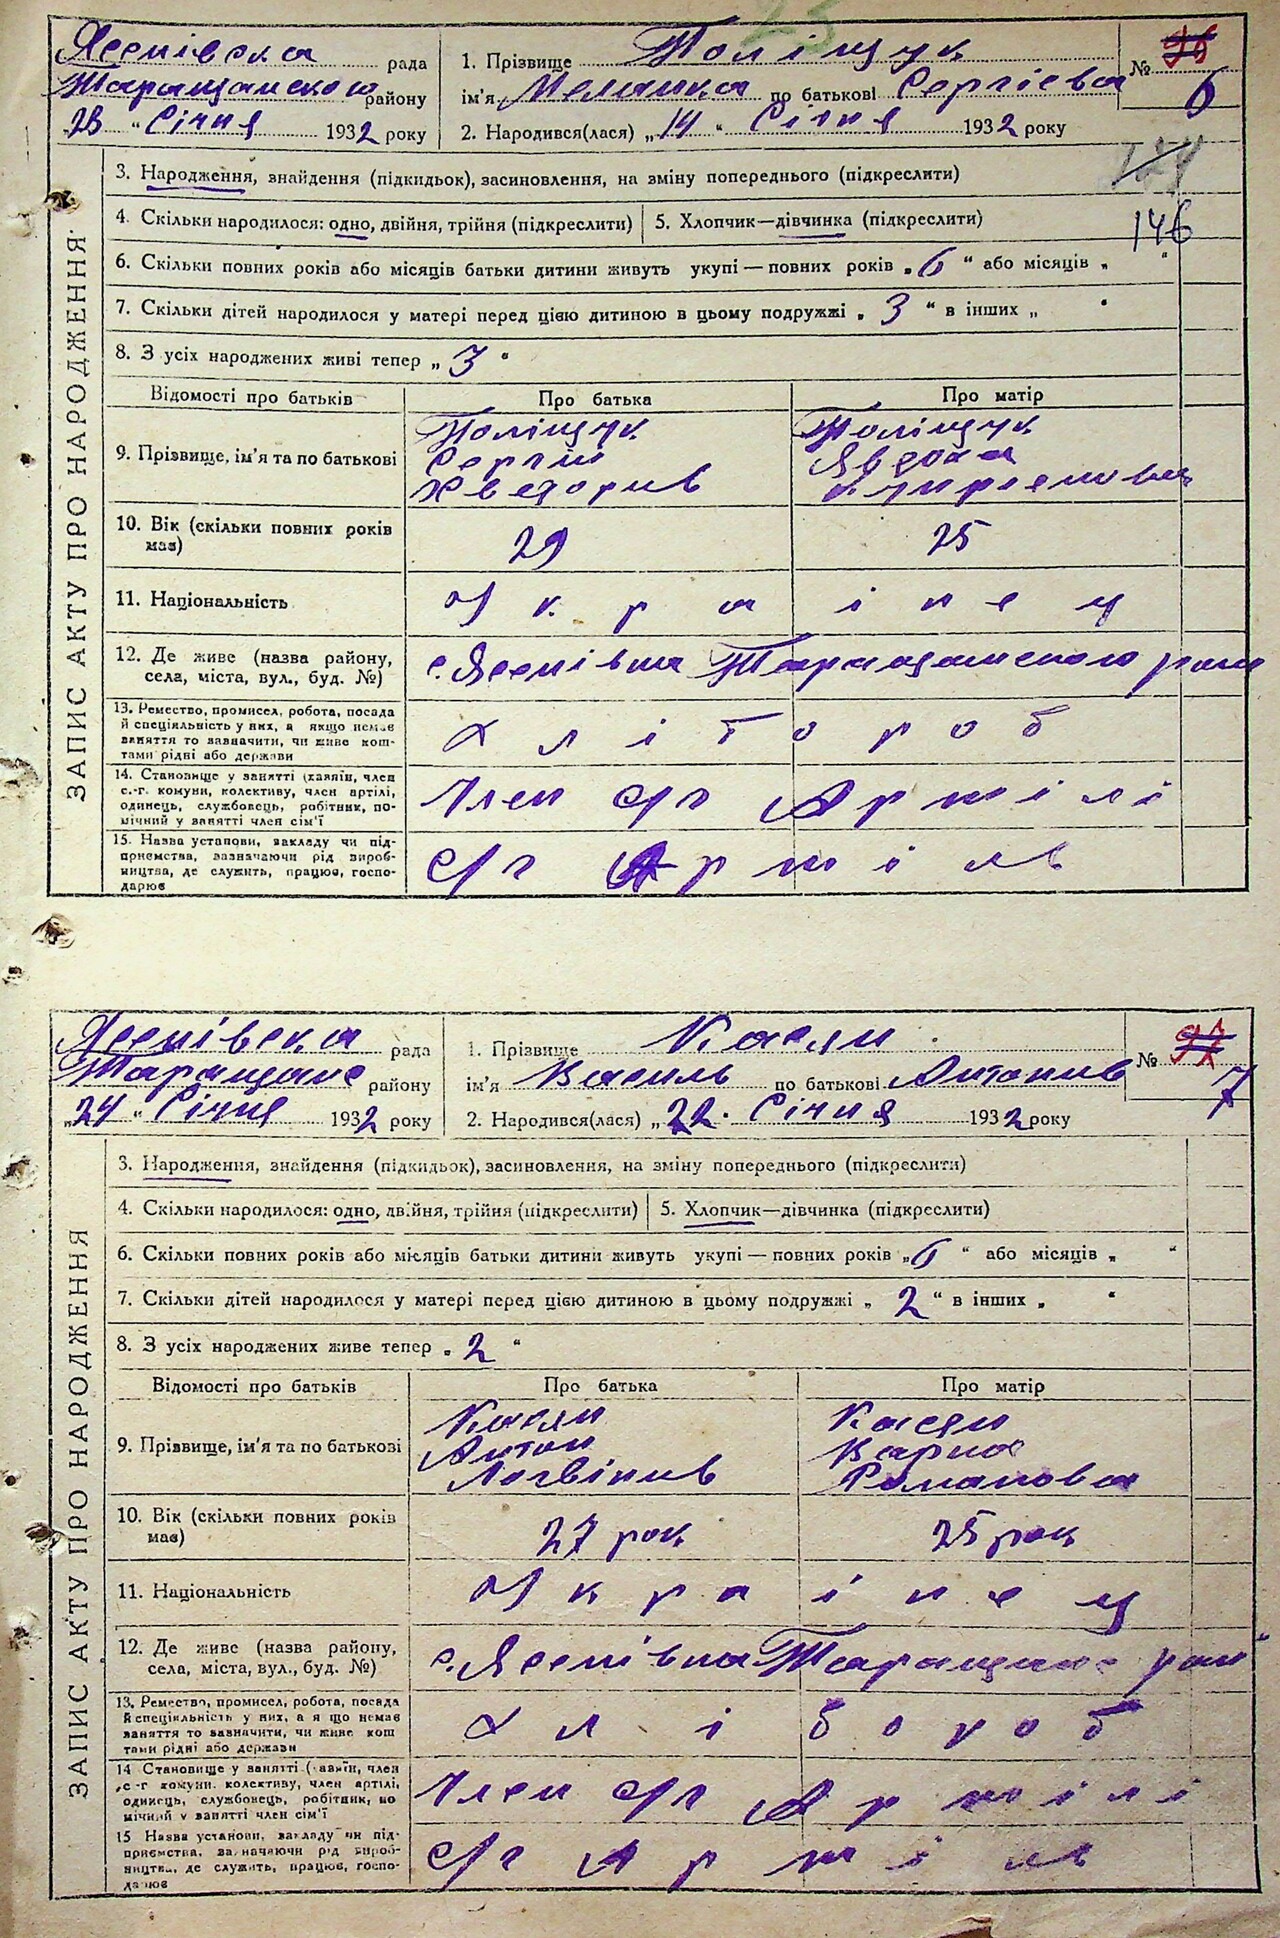 Ясенівска рада
Таращанского району
„23 “ Січня 1932 року
1. Прізвище Поліщук
ім’я Меланка по батькові Сергієва
2. Народився(лася) „14 “ Січня 1932 року
№ 96
6
124
146
ЗАПИС АКТУ ПРО НАРОДЖЕННЯ
3. Народження, знайдення (підкидьок), засиновлення, на зміну попереднього (підкреслити)
4. Скільки народилося: одно, двійня, трійня (підкреслити) 5. Хлопчик—дівчинка (підкреслити)
6. Скільки повних років або місяців батьки дитини живуть укупі — повних років „ 6 “ або місяців „ “
7. Скільки дітей народилося у матері перед цією дитиною в цьому подружжі „ 3 “ в інших „ “
8. З усіх народжених живі тепер „ 3 “
Відомості про батьків Про батька Про матір
9. Прізвище, ім’я та по батькові
Поліщук
Сергій
Хведорив
Поліщук
Явдоха
10. Вік (скільки повних років має) 29 25
11. Національність Українец
12. Де живе (назва району, села, міста, вул., буд. №) с. Ясенівка Таращанского рай
13. Ремество, промисел, робота, посада
й спеціяльність у них, а якщо немає
заняття то зазначити, чи живе кош-
тами рідні або держави
Хлібороб
14. Становище у занятті (хазяїн, член
с.-г. комуни, колективу, член артілі,
одинець, службовець, робітник, по-
мічний у занятті член сім’ї
Член с/г Артілі
15. Назва установи, закладу чи під-
приємства, зазначаючи рід вироб-
ництва, де служить, працює, госпо-
дарює
с/г Артіль
Ясенівска рада
Таращанс району
„24 “ Січня 1932 року
1. Прізвище Касян
ім’я Василь по батькові Антонив
2. Народився(лася) „22. Січня 1932 року
№ 97
7
ЗАПИС АКТУ ПРО НАРОДЖЕННЯ
3. Народження, знайдення (підкидьок), засиновлення, на зміну попереднього (підкреслити)
4. Скільки народилося: одно, двійня, трійня (підкреслити) 5. Хлопчик—дівчинка (підкреслити)
6. Скільки повних років або місяців батьки дитини живуть укупі — повних років „ 6 “ або місяців „ “
7. Скільки дітей народилося у матері перед цією дитиною в цьому подружжі „ 2 “ в інших „ “
8. З усіх народжених живе тепер „ 2 “
Відомості про батьків Про батька Про матір
9. Прізвище, ім’я та по батькові
Касян
Антон
Логвінив
Касян
Варка
Романова
10. Вік (скільки повних років має) 27 рок 25 рок
11. Національність Українец
12. Де живе (назва району, села, міста, вул., буд. №) с. Ясенівка Таращанс рай
13. Ремество, промисел, робота, посада
й спеціяльність у них, а якщо немає
заняття то зазначити, чи живе кош
тами рідні або держави
Хлібороб
14 Становище у занятті (хазяїн, член
с.-г комуни, колективу, член артілі,
одинець, службовець, робітник, по
мічний у занятті член сім’ї
Член с/г Артілі
15 Назва установи, закладу чи під-
приємства, зазначаючи рід вироб-
ництва, де служить, працює, госпо-
дарює
с/г Артіль